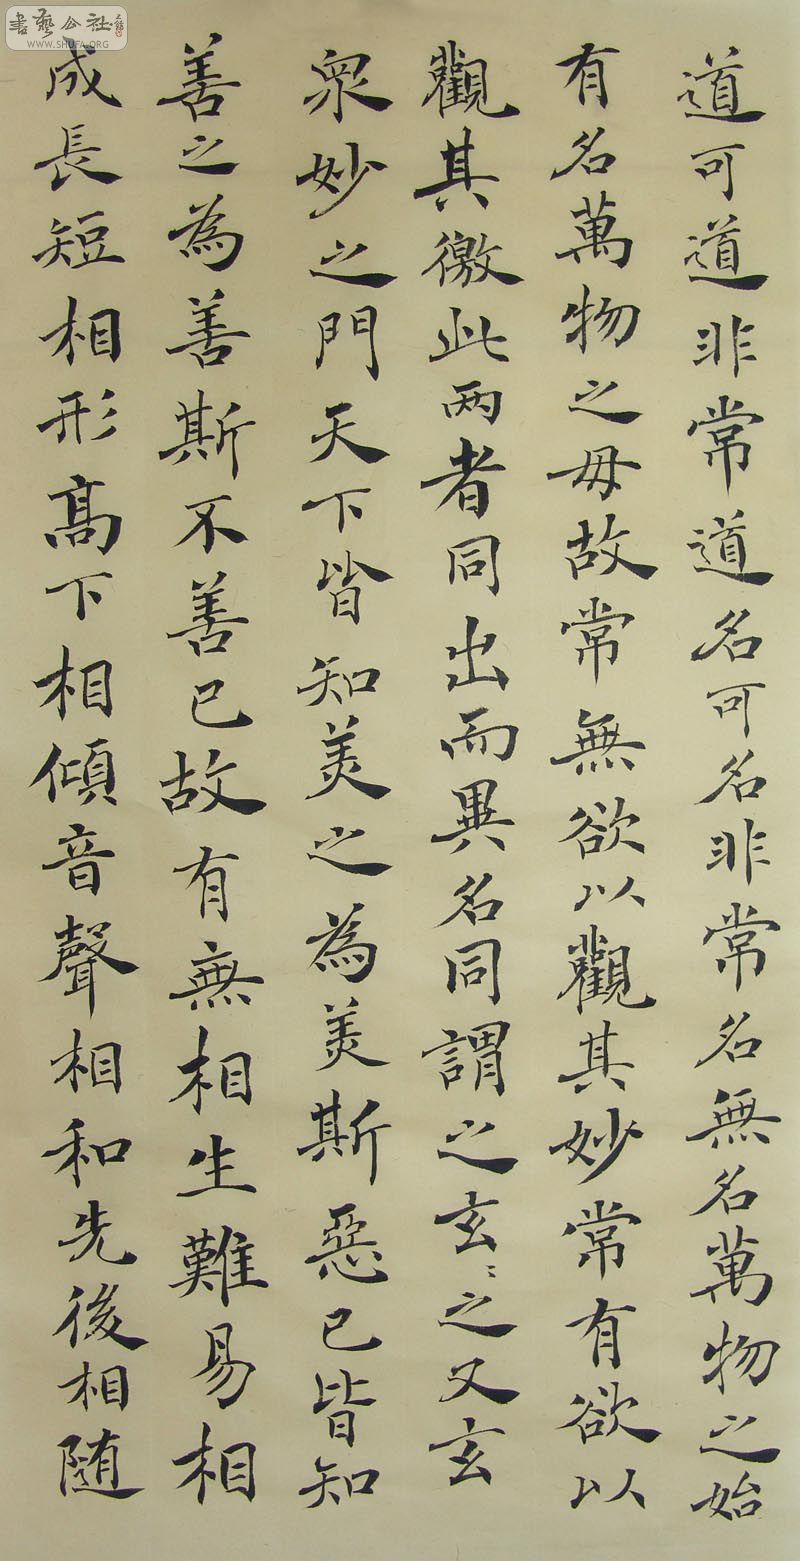 道可道非常道名可名非常名無名萬物之始
有名萬物之母故常無欲以觀其妙常有欲以
觀其徼此两者同出而異名同謂之玄〻之又玄
衆妙之門天下皆知美之為美斯惡已皆知
善之為善斯不善已故有無相生難易相
成長短相形高下相傾音聲相和先後相随
書藝公社
WWW.SHUFA.ORG